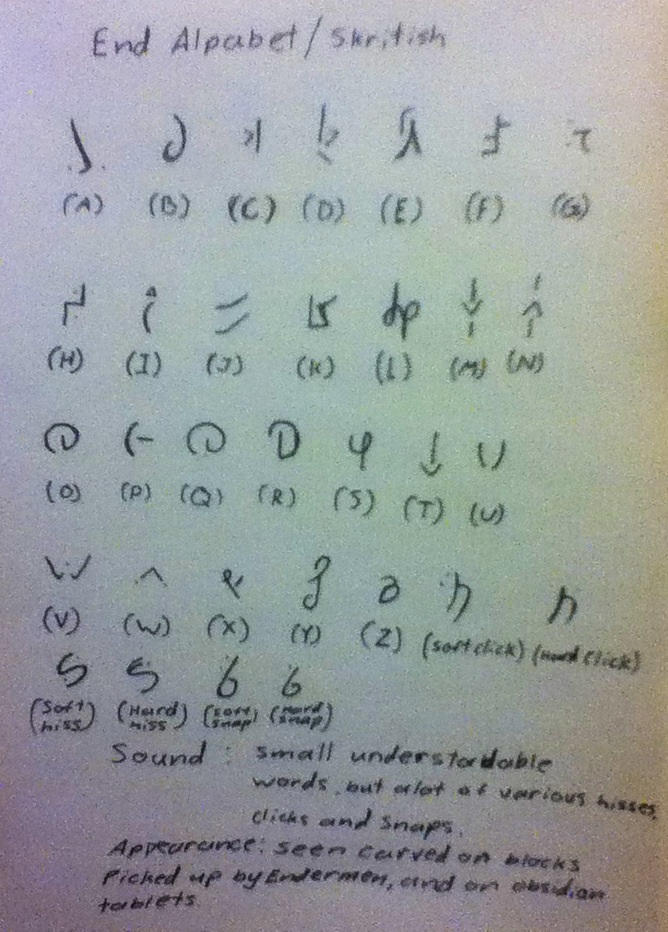 End Alpabet/Skritish
(A) (B) (C) (D) (E) (F) (G)
(H) (I) (J) (K) (L) (M) (N)
(O) (P) (Q) (R) (S) (T) (U)
(V) (W) (X) (Y) (Z) (soft click) (Hard Click)
(Soft hiss) (Hard hiss) (soft snap) (Hard snap)
Sound: small understandable
words, but alot of various hisses,
clicks and snaps.
Appearance: seen carved on blocks
Picked up by Endermen, and on obsidian
tablets.